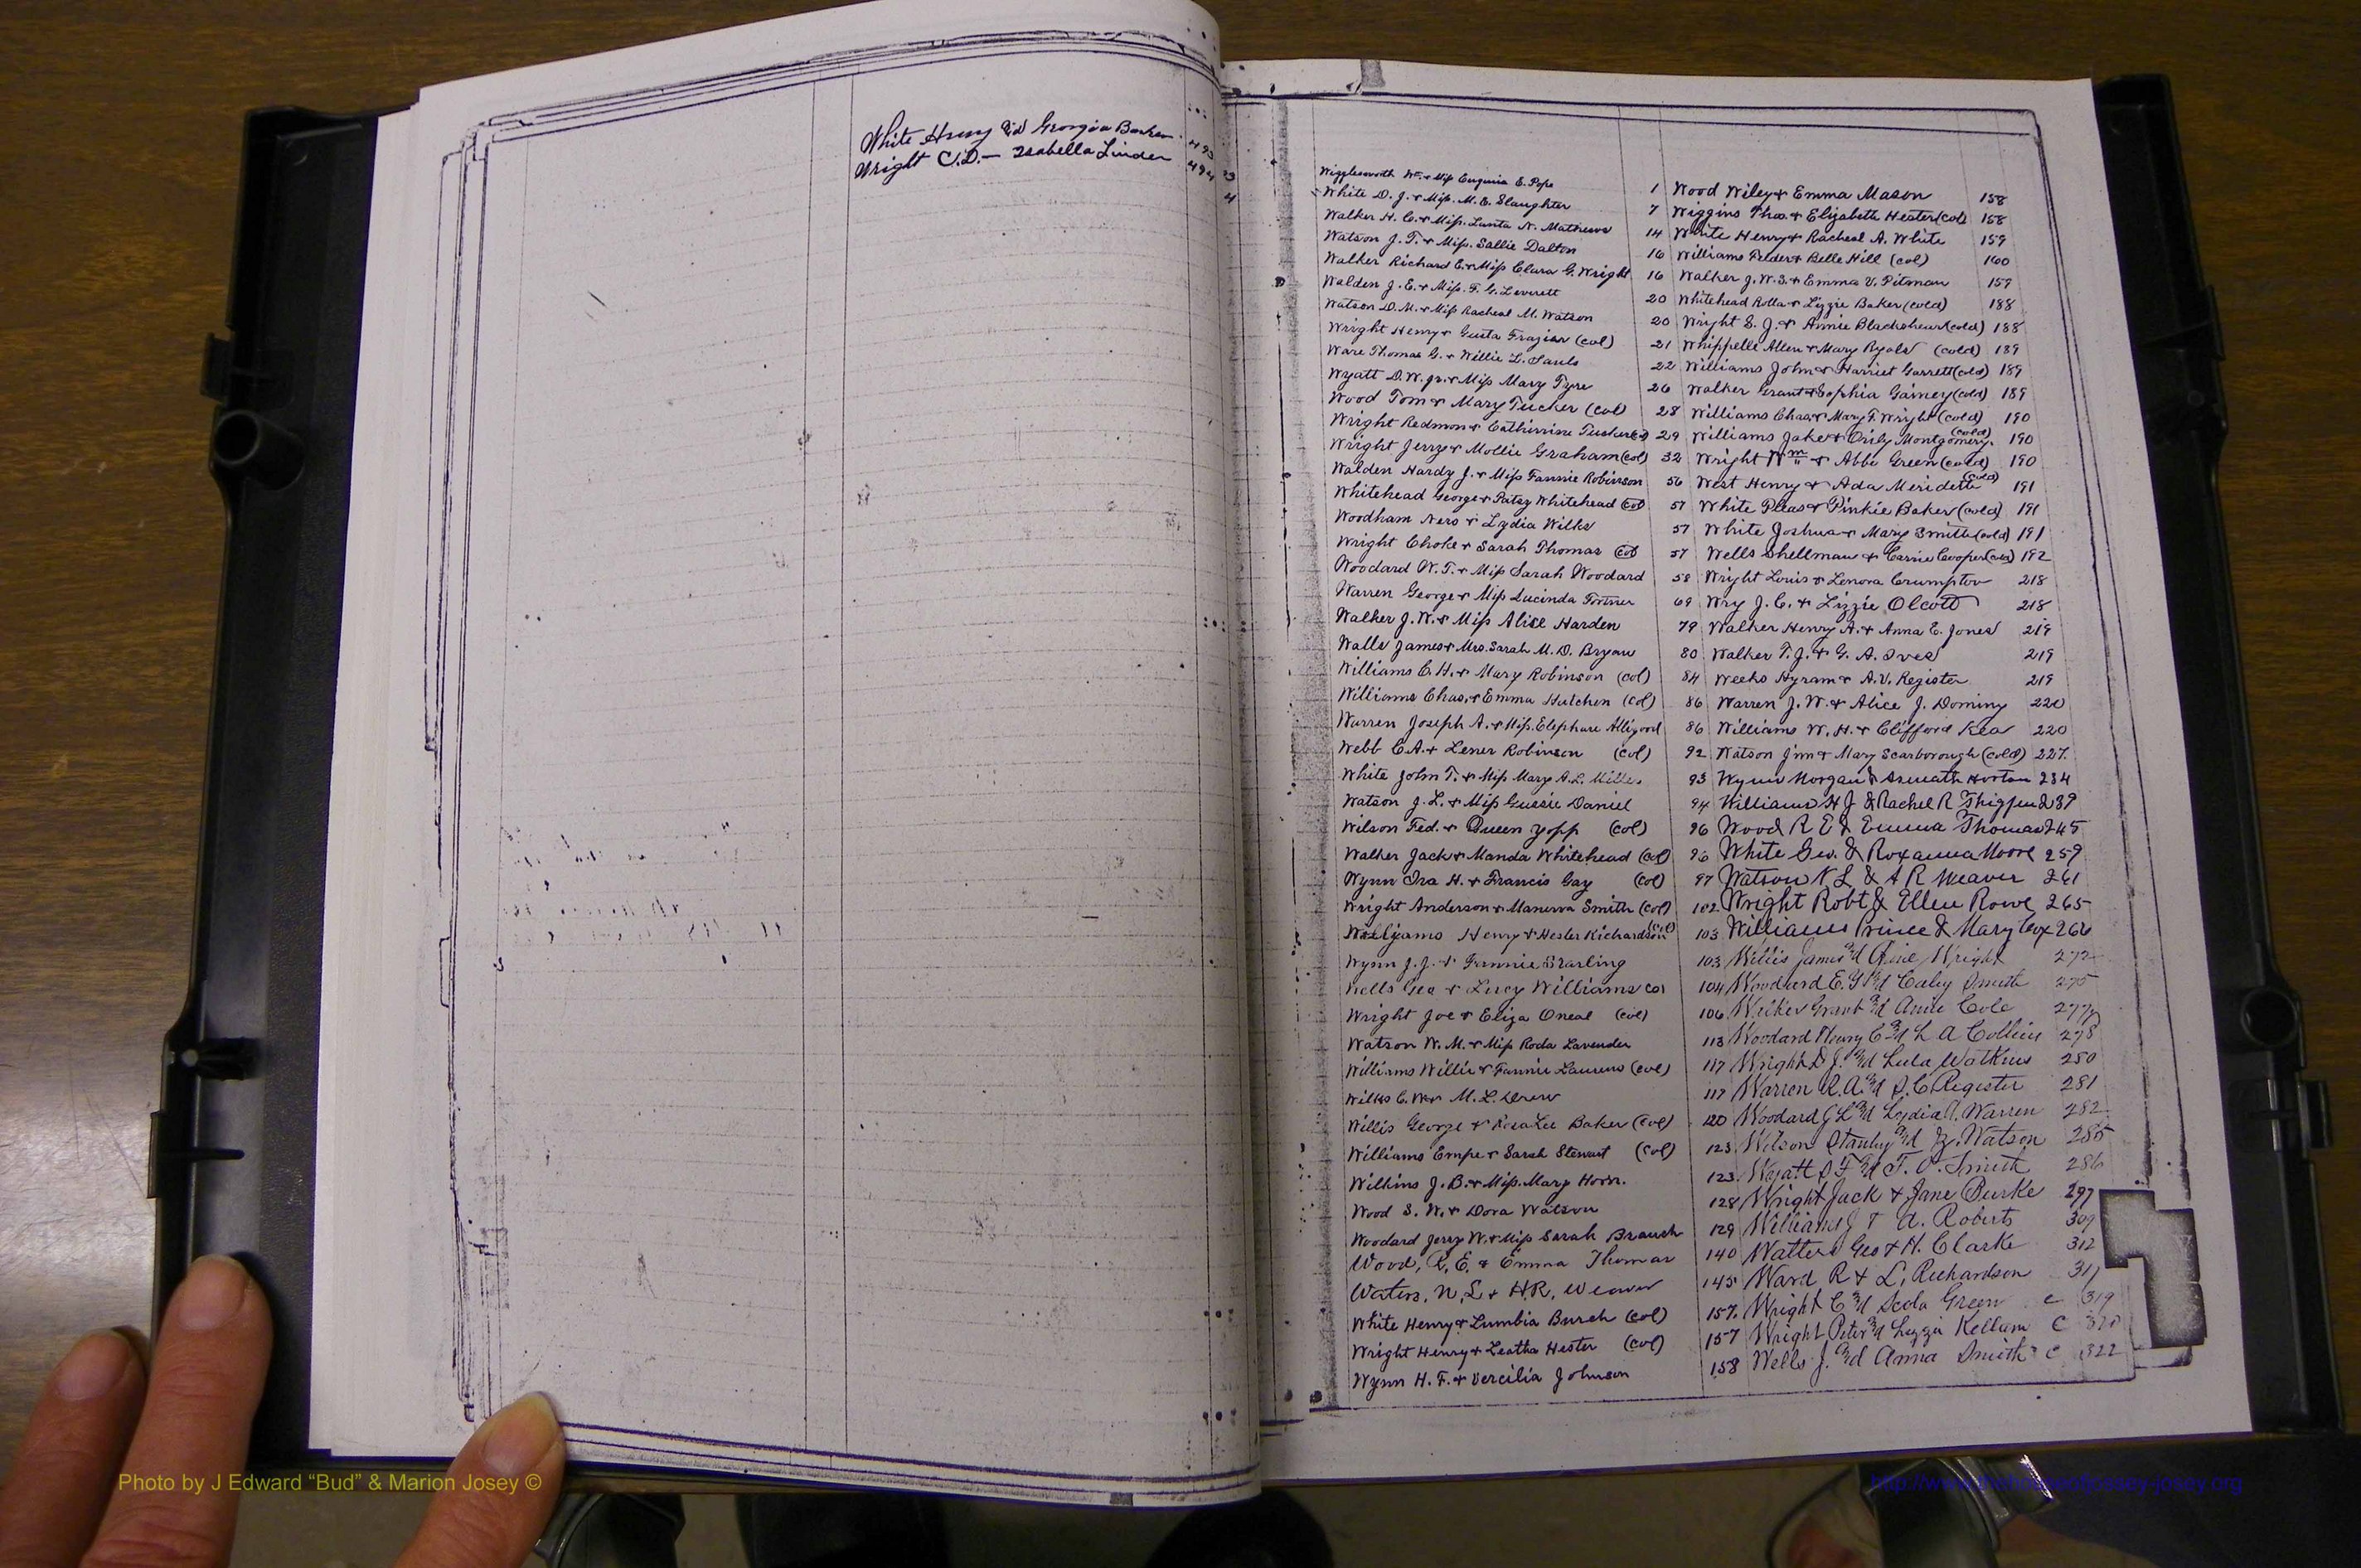 White Henry and Georgia 493
Wright C.D. — Isabella Linder 494
Wigglesworth Wm. & Miss Eugenia E. Pope 1
White D. J. & Miss. M. E. Slaughter 7
Walker H. C. & Miss. Lunta N. Mathews 14
Watson J. T. & Miss. Sallie Dalton 16
Walker Richard E. & Miss Clara G. Wright 16
Walden J. E. & Miss. F. G. Leverett 20
Watson D. M. & Miss Racheal M. Watson 20
Wright Henry & Gusta Frazier (col) 21
Ware Thomas G. & Willie L. Sauls 22
Wyatt D. W. jr. & Miss Mary Fyre 26
Wood Tom & Mary Tucker (col) 28
Wright Redmon & Cathirrine Tucker (col) 29
Wright Jerry & Mollie Graham (col) 32
Walden Hardy J. & Miss Fannie Robinson 56
Whitehead George & Patsy Whitehead (col) 57
Woodham Nero & Lydia Wilks 57
Wright Choke & Sarah Thomas (col) 57
Woodard W. T. & Miss Sarah Woodard 58
Warren George & Miss Lucinda Fortner 69
Walker J. W. & Miss Alice Harden 79
Walls James & Mrs. Sarah M. D. Bryan 80
Williams C. H. & Mary Robinson (col) 84
Williams Chas. & Emma Hutchen (col) 86
Warren Joseph A. & Miss. Elephare Alligood 86
Webb C. A. & Lener Robinson (col) 92
White John T. & Miss Mary A. L. Miller 93
Watson J. L. & Miss Gussie Daniel 94
Wilson Fed. & Queen Zopp (col) 96
Walker Jack & Manda Whitehead (col) 96
Wynn Ira H. & Francis Gay (col) 97
Wright Anderson & Manerva Smith (col) 102
Williams Henry & Hester Richardson (col) 103
Wynn J. J. & Fannie Starling 103
Wells Geo & Lucy Williams col 104
Wright Joe & Eliza Oneal (col) 106
Watson W. M. & Miss Roda Lavender 113
Williams Willie & Fannie Laurens (col) 117
Wilkes C. W. & M. L. Drew 117
Willis George & Rosa Lee Baker (col) 120
Williams Empe & Sarah Stewart (col) 123
Wilkins J. B. & Miss. Mary Horn. 123
Wood S. W. & Dora Watson 128
Woodard Jerry W. & Miss Sarah Branch 129
Wood, R. E. & Emma Thomas 140
Waters, N. L & H.R, Weaver 145
White Henry & Lumbia Burch (col) 157
Wright Henry & Leatha Hester (col) 157
Wynn H. F. & Vercilia Johnson 158
Wood Wiley & Emma Mason 158
Wiggins Thos. & Elizabeth Hester (col) 158
White Henry & Racheal A. White 159
Williams & Belle Hill (col) 160
Walker J. W. S. & Emma V. Pitman 159
Whitehead Rolla & Lizzie Baker (cold) 188
Wright S. J. & Annie Blackshear (cold) 188
Whippelle Allen & Mary Ryals (cold) 189
Williams John & Harriet Garrett (cold) 189
Walker Grant & Sophia Gainey (cold) 189
Williams Chas & Mary F. Wright (cold) 190
Williams Jake & Orily Montgomery (cold) 190
Wright Wm & Abbe Green (cold) 190
West Henry & Ada Merideth (cold) 191
White Pleas & Pinkie Baker (cold) 191
White Joshua & Mary Smith (cold) 191
Wells Shellman & Carrie Cooper (cold) 192
Wright Louis & Lenora Crumpton 218
Wry J. C. & Lizzie Olcott 218
Walker Henry A. & Anna E. Jones 219
Walker T. J. & G. A. Ives 219
Weeks Hyram & A. V. Register 219
Warren J. W. & Alice J. Dominy 220
Williams W. H. & Clifford Kea 220
Watson Jim & Mary Scarborough (cold) 227.
Wynn Morgan & Asenath Horton 234
Williams H J & Rachel R Thigpen 239
Wood R E & Emma Thomas 245
White Geo. & Roxanna Moore 259
Watson N L & A R Weaver 261
Wright Robt & Ellen Rowe 265
Williams Prince & Mary Cox 266
Willis James and Wright 272
Woodard E. Y. and Caley Smith 275
Walker Grant and Annie Cole 277
Woodard Henry C and L A Collins 278
Wright D J. and Lula Watkins 280
Warren R. A. and S. C. Register 281
Woodard G L and Lydia A. Warren 282
Wilson Stanley and Watson 285
Wyatt S F and T. O. Smith 286
Wright Jack & Jane Burke 297
Williams J & A. Roberts 309
Watters Geo & H. Clarke 312
Ward R & L. Richardson 317
Wright C and Seda Green c 319
Wright Peter and Lizzie Kellam C 320
Wells J. and Anna Smith c 322
Photo by J Edward “Bud” & Marion Josey ©
http://www.thehouseofjossey-josey.org